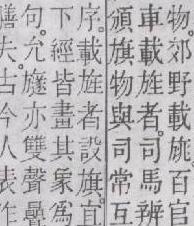 物。郊野載旐百官
車載旌者。司馬辨
頒旗物與司常互
序。載旌者設旗宜
下經皆畫其象爲
句。允旞亦雙聲疊
失。古今人表作